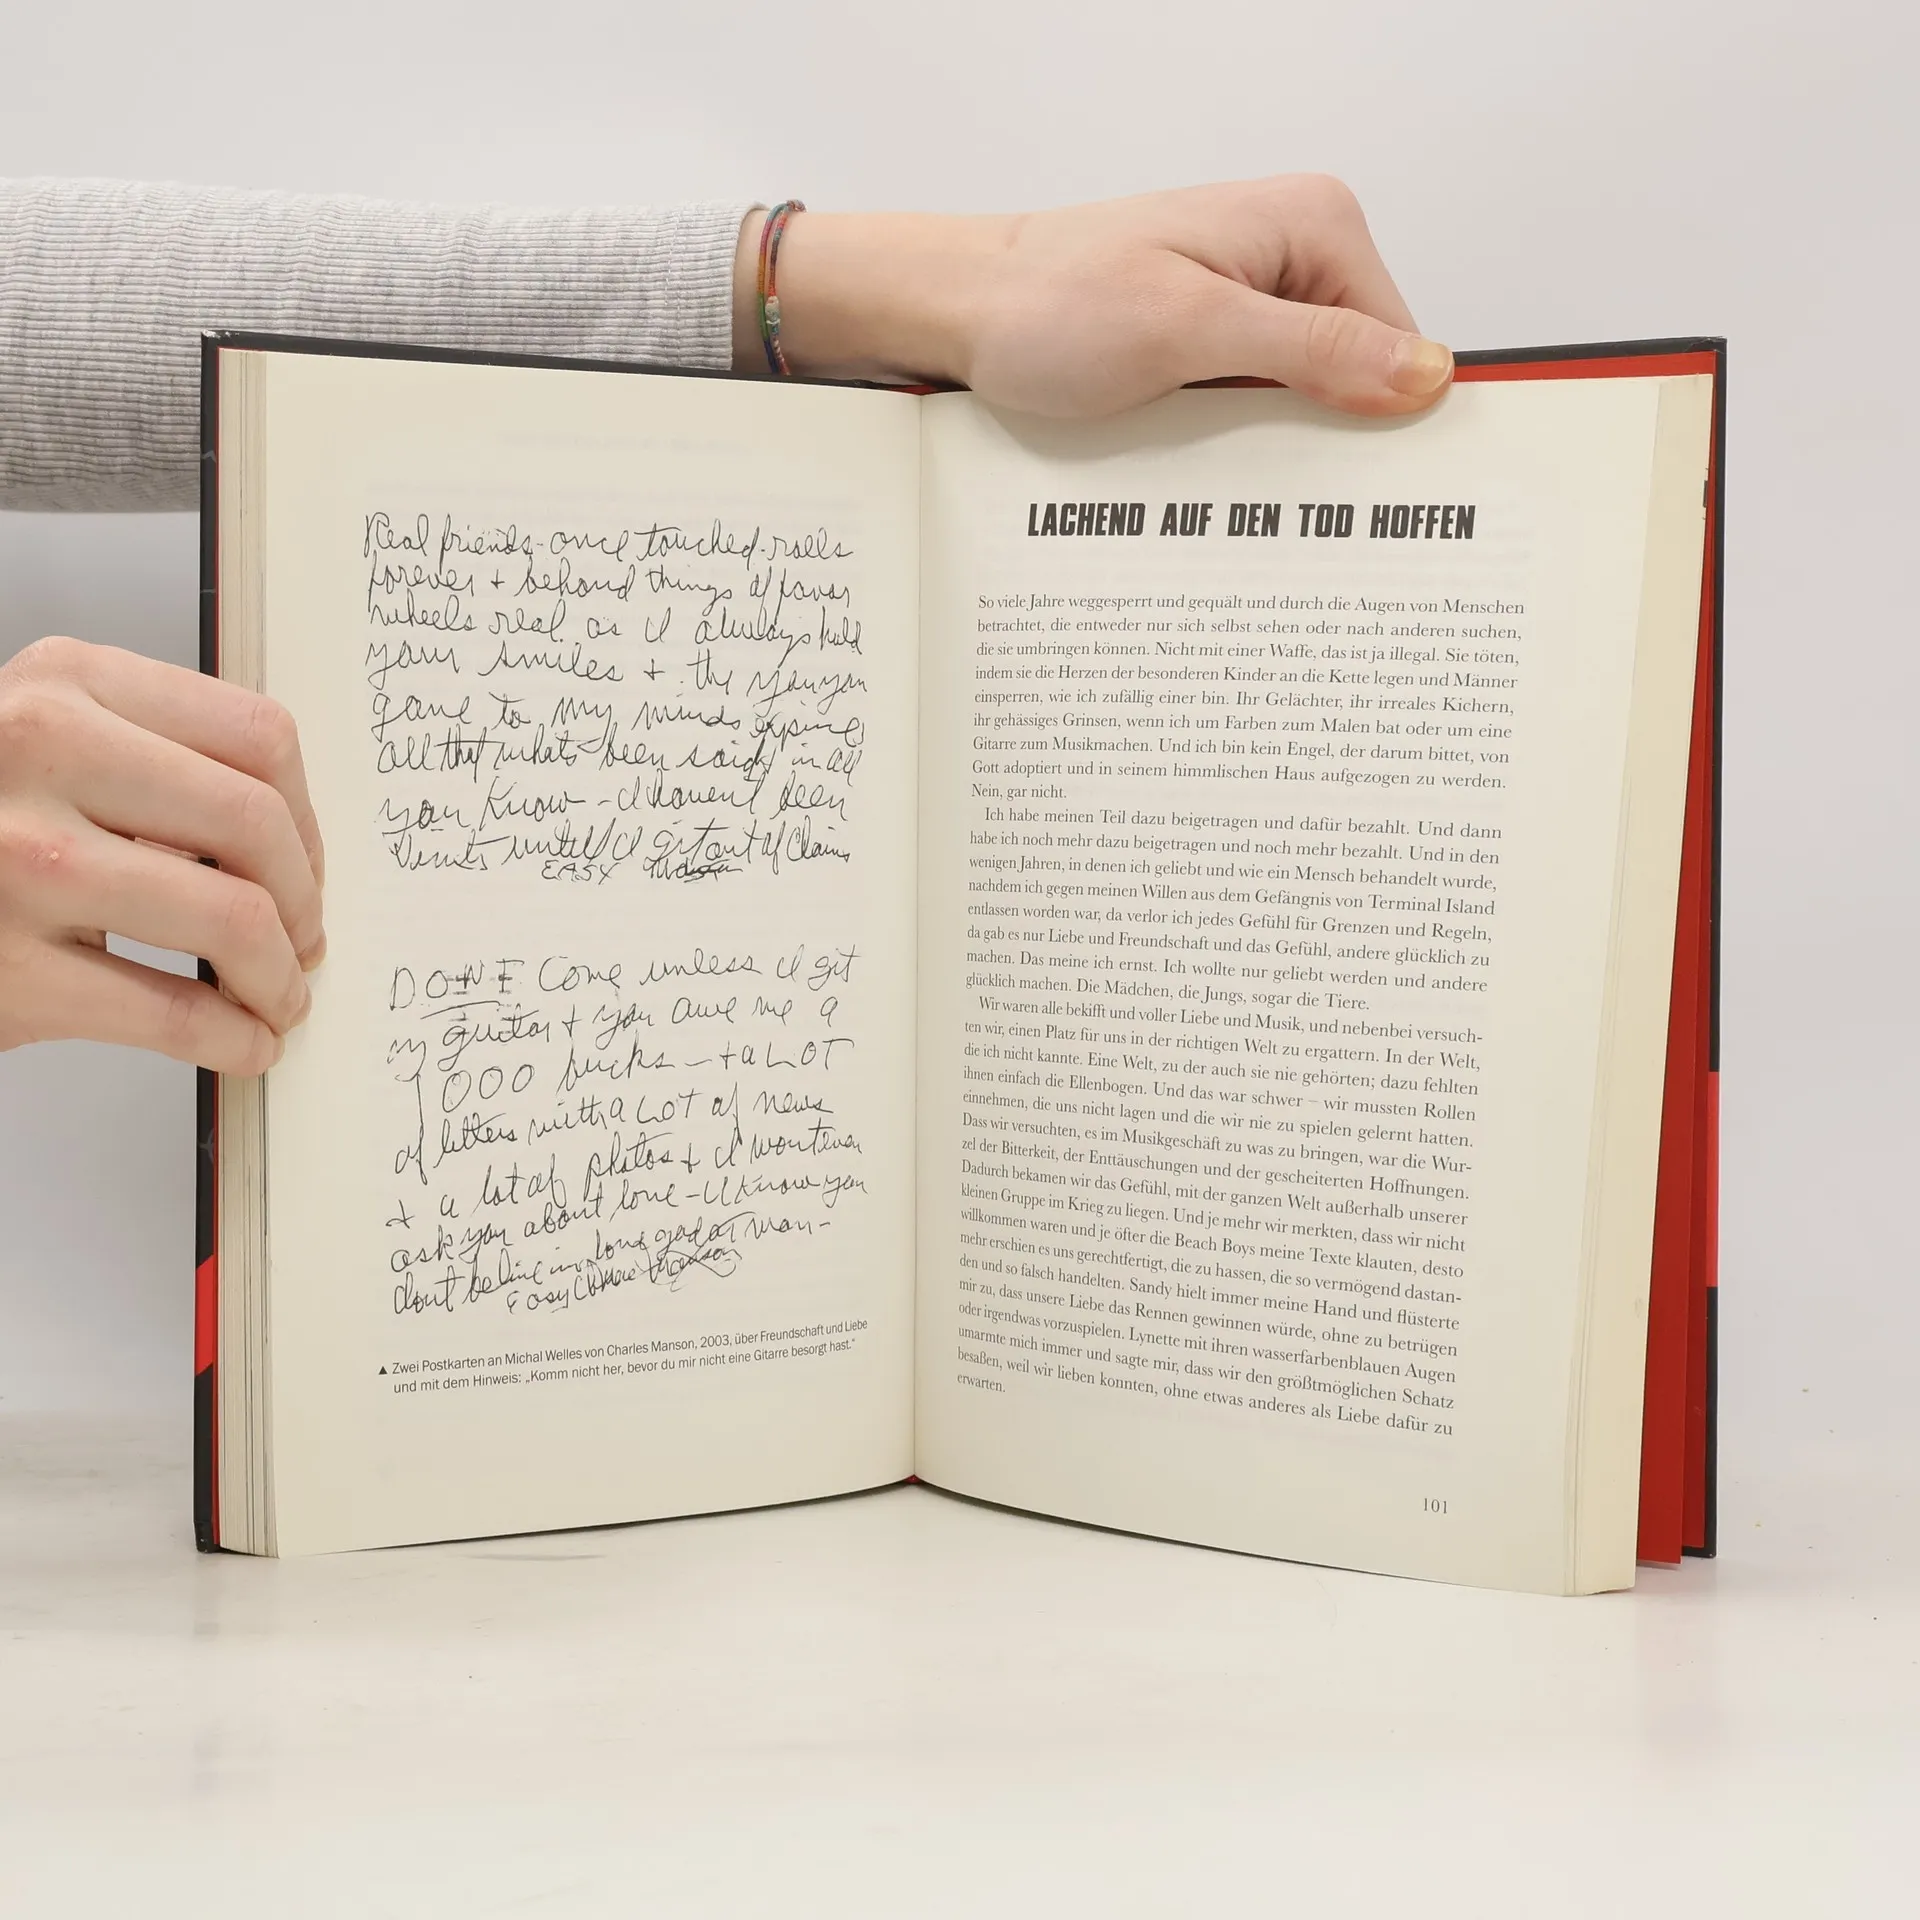 Real friends - once touched - rolls
forever + behond things of favor
wheels real. as I always hold
your smiles + the you you
gave to my minds
all that whats been said in all
you Know - I havent been
visits until I git out of
EASY
DONT Come unless I git
my guitar + you owe me a
1000 bucks - + a LOT
of letters with a LOT of news
+ a lot of photos + I wont even
ask you about love - I Know you
dont believe in love
Easy
▲ Zwei Postkarten an Michal Welles von Charles Manson, 2003, über Freundschaft und Liebe
und mit dem Hinweis: „Komm nicht her, bevor du mir nicht eine Gitarre besorgt hast.“
LACHEND AUF DEN TOD HOFFEN
So viele Jahre weggesperrt und gequält und durch die Augen von Menschen
betrachtet, die entweder nur sich selbst sehen oder nach anderen suchen,
die sie umbringen können. Nicht mit einer Waffe, das ist ja illegal. Sie töten,
indem sie die Herzen der besonderen Kinder an die Kette legen und Männer
einsperren, wie ich zufällig einer bin. Ihr Gelächter, ihr irreales Kichern,
ihr gehässiges Grinsen, wenn ich um Farben zum Malen bat oder um eine
Gitarre zum Musikmachen. Und ich bin kein Engel, der darum bittet, von
Gott adoptiert und in seinem himmlischen Haus aufgezogen zu werden.
Nein, gar nicht.
Ich habe meinen Teil dazu beigetragen und dafür bezahlt. Und dann
habe ich noch mehr dazu beigetragen und noch mehr bezahlt. Und in den
wenigen Jahren, in denen ich geliebt und wie ein Mensch behandelt wurde,
nachdem ich gegen meinen Willen aus dem Gefängnis von Terminal Island
entlassen worden war, da verlor ich jedes Gefühl für Grenzen und Regeln,
da gab es nur Liebe und Freundschaft und das Gefühl, andere glücklich zu
machen. Das meine ich ernst. Ich wollte nur geliebt werden und andere
glücklich machen. Die Mädchen, die Jungs, sogar die Tiere.
Wir waren alle bekifft und voller Liebe und Musik, und nebenbei versuch-
ten wir, einen Platz für uns in der richtigen Welt zu ergattern. In der Welt,
die ich nicht kannte. Eine Welt, zu der auch sie nie gehörten; dazu fehlten
ihnen einfach die Ellenbogen. Und das war schwer – wir mussten Rollen
einnehmen, die uns nicht lagen und die wir nie zu spielen gelernt hatten.
Dass wir versuchten, es im Musikgeschäft zu was zu bringen, war die Wur-
zel der Bitterkeit, der Enttäuschungen und der gescheiterten Hoffnungen.
Dadurch bekamen wir das Gefühl, mit der ganzen Welt außerhalb unserer
kleinen Gruppe im Krieg zu liegen. Und je mehr wir merkten, dass wir nicht
willkommen waren und je öfter die Beach Boys meine Texte klauten, desto
mehr erschien es uns gerechtfertigt, die zu hassen, die so vermögend dastan-
den und so falsch handelten. Sandy hielt immer meine Hand und flüsterte
mir zu, dass unsere Liebe das Rennen gewinnen würde, ohne zu betrügen
oder irgendwas vorzuspielen. Lynette mit ihren wasserfarbenblauen Augen
umarmte mich immer und sagte mir, dass wir den größtmöglichen Schatz
besaßen, weil wir lieben konnten, ohne etwas anderes als Liebe dafür zu
erwarten.
101